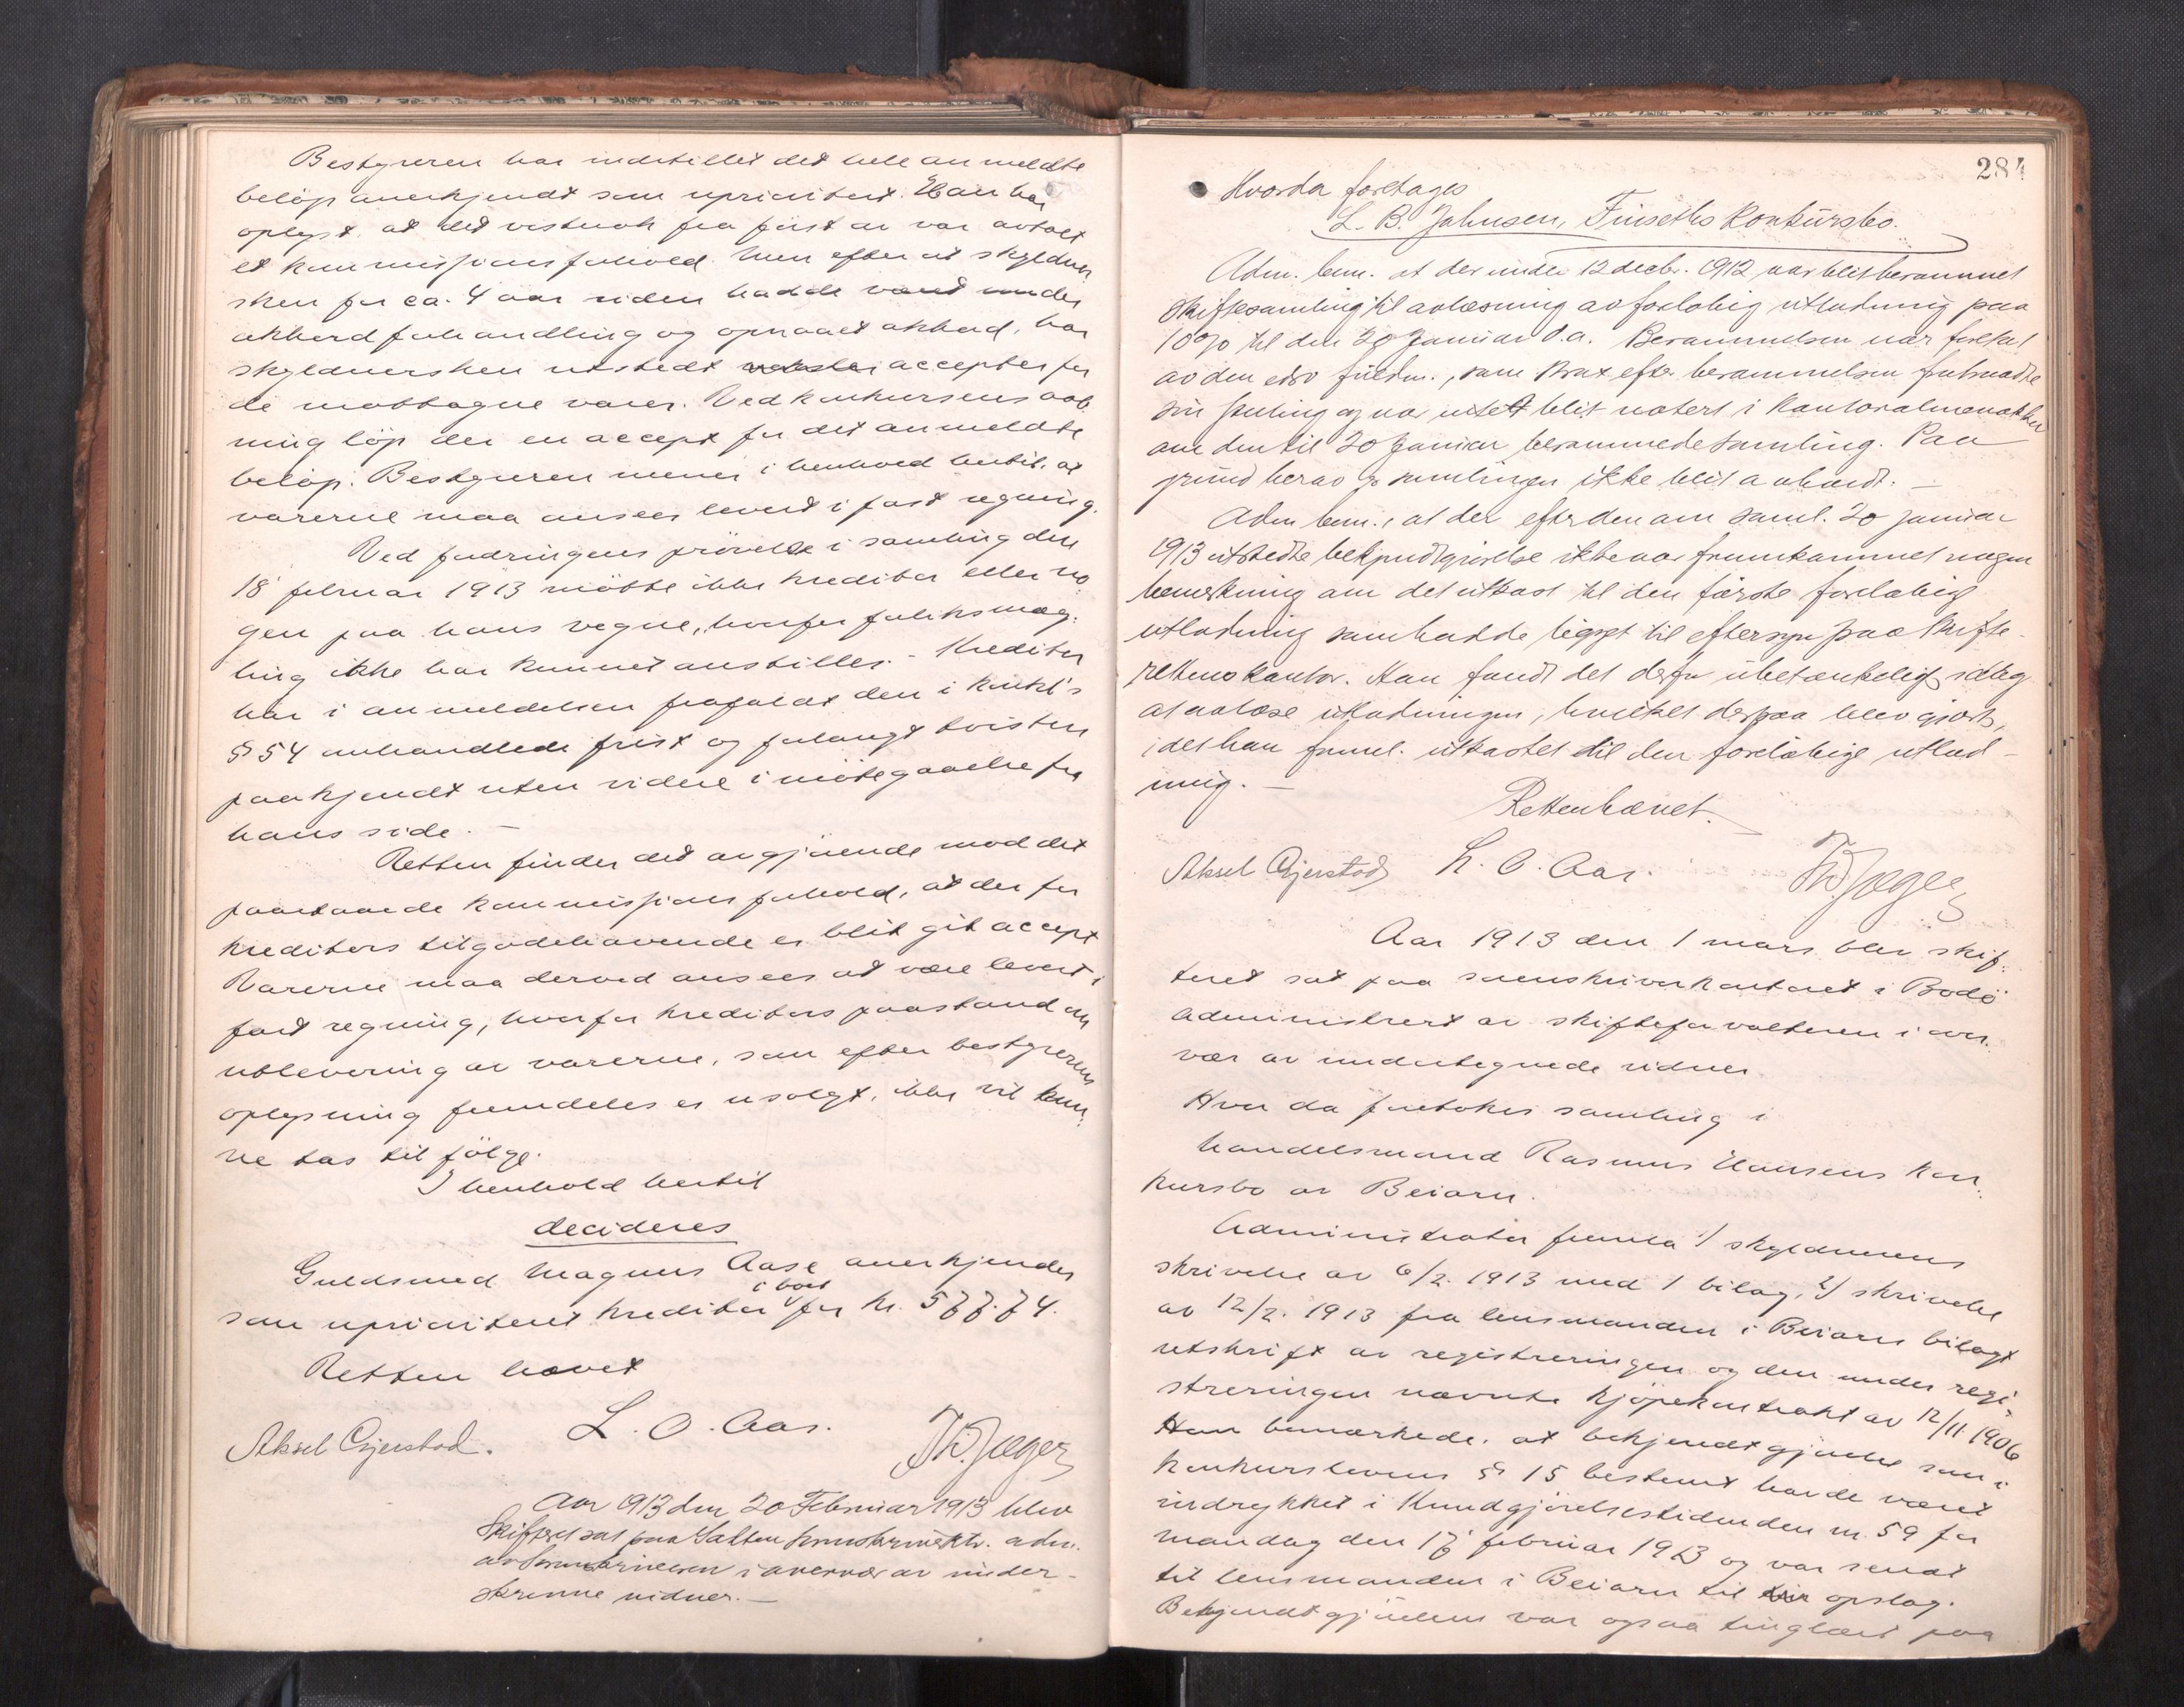 Bestyreren har indstillet det hele anmeldte
beløp anerkjendt som uprioritert. Han har
oplyst, at det vistnok fra først av var avtalt
et kommissionsforhold men efter at skyldner
sken for ca. 4 aar siden hadde været under
akkordforhandling og opnaaet akkord, har
skyldnersken utstedt accepter for
de mottagne varer. Ved konkursens aab
ning løp der en accept for det anmeldte
beløp. Bestyreren mener i henhold hertil, at
varerne maa ansees levert i fast regning.
Ved fordringens prøvelse i samling den
18 februar 1913 møtte ikke kreditor eller no
gen paa hans vegne, hvorfor forliksmæg-
ling ikke har kunnet anstilles. - Kreditor
har i anmeldelsen frafaldt den i konkl's
§ 54 omhandlede frist og forlangt tvisten
paakjendt uten videre imøtegaaelse fra
hans side. -
Retten finder det avgjørende mod det
paastaaede kommissionsforhold, at der for
kreditors tilgodehavende er blit git accept
Varerne maa derved ansees at være levert i
fast regning, hvorfor kreditors paastand om
utlevering av varerne, som efter bestyrerens
oplysning fremdeles er usolgt, ikke vil kun-
ne tas til følge.
I henhold hertil
decideres
Guldsmed Magnus Aase anerkjendes
i boet
som uprioritert kreditor for kr. 577.74.
Retten hævet
Aksel Gjerstad. L. O. Aas. Th. Jæger
Aar 1913 den 20 Februar 1913 blev
Skifteret sat paa Salten sorenskriverktr. adm.
av Sorenskriveren i overvær av under-
skrevne vidner. -
284
Hvorda foretages
L. B. Johnsen, Finseths Konkursbo.
Adm. bem. at der under 12 decbr. 1912 var blit berammet
skiftesamling til avlæsning av foreløbig utlodning paa
10% til den 20 Januar d.a. Berammelsen var foretat
av den edsv fuldm., som strax efter berammelsen fratraadte
sin stilling og var intet blit notert i kontoralmenakken
om den til 20 Januar berammede samling. Paa
grund herav er samlingen ikke blit avholdt. -
Adm bem., at der efter den om saml. 20 januar
1913 utstedte bekjendtgjørelse ikke var fremkommet nogen
bemerkning om det utkast til den første foreløbig
utlodning som hadde ligget til eftersyn paa skifte-
rettens kontor. Han fandt det derfor ubetænkelig idag
at avlæse utlodningen, hvilket derpaa blev gjort,
idet han freml. utkastet til den foreløbige utlod-
ning. -
Retten hævet.
Aksel Gjerstad L. O. Aas. Th. Jæger
Aar 1913 den 1 mars blev skif-
teret sat paa sorenskriverkontoret i Bodø
administrert av skifteforvalteren i over-
vær av undertegnede vidner
Hvor da foretokes samling i
handelsmand Rasmus Hansens kon-
kursbo av Beiarn.
Administrator fremla 1/ skyldnerens
skrivelse av 6/2. 1913 med 1 bilag, 2/ skrivelse
av 12/2. 1913 fra lensmanden i Beiarn bilagt
utskrift av registreringen og den under regi-
streringen nævnte kjøpekontrakt av 12/11 1906
Han bemærkede, at bekjendtgjørelse som i
konkurslovens § 15 bestemt havde været
indrykket i Kundgjørelsestidenden nr. 59 for
mandag den 17 februar 1913 og var sendt
til lensmanden i Beiarn til opslag.
Bekjendtgjørelsen var ogsaa tinglæst paa